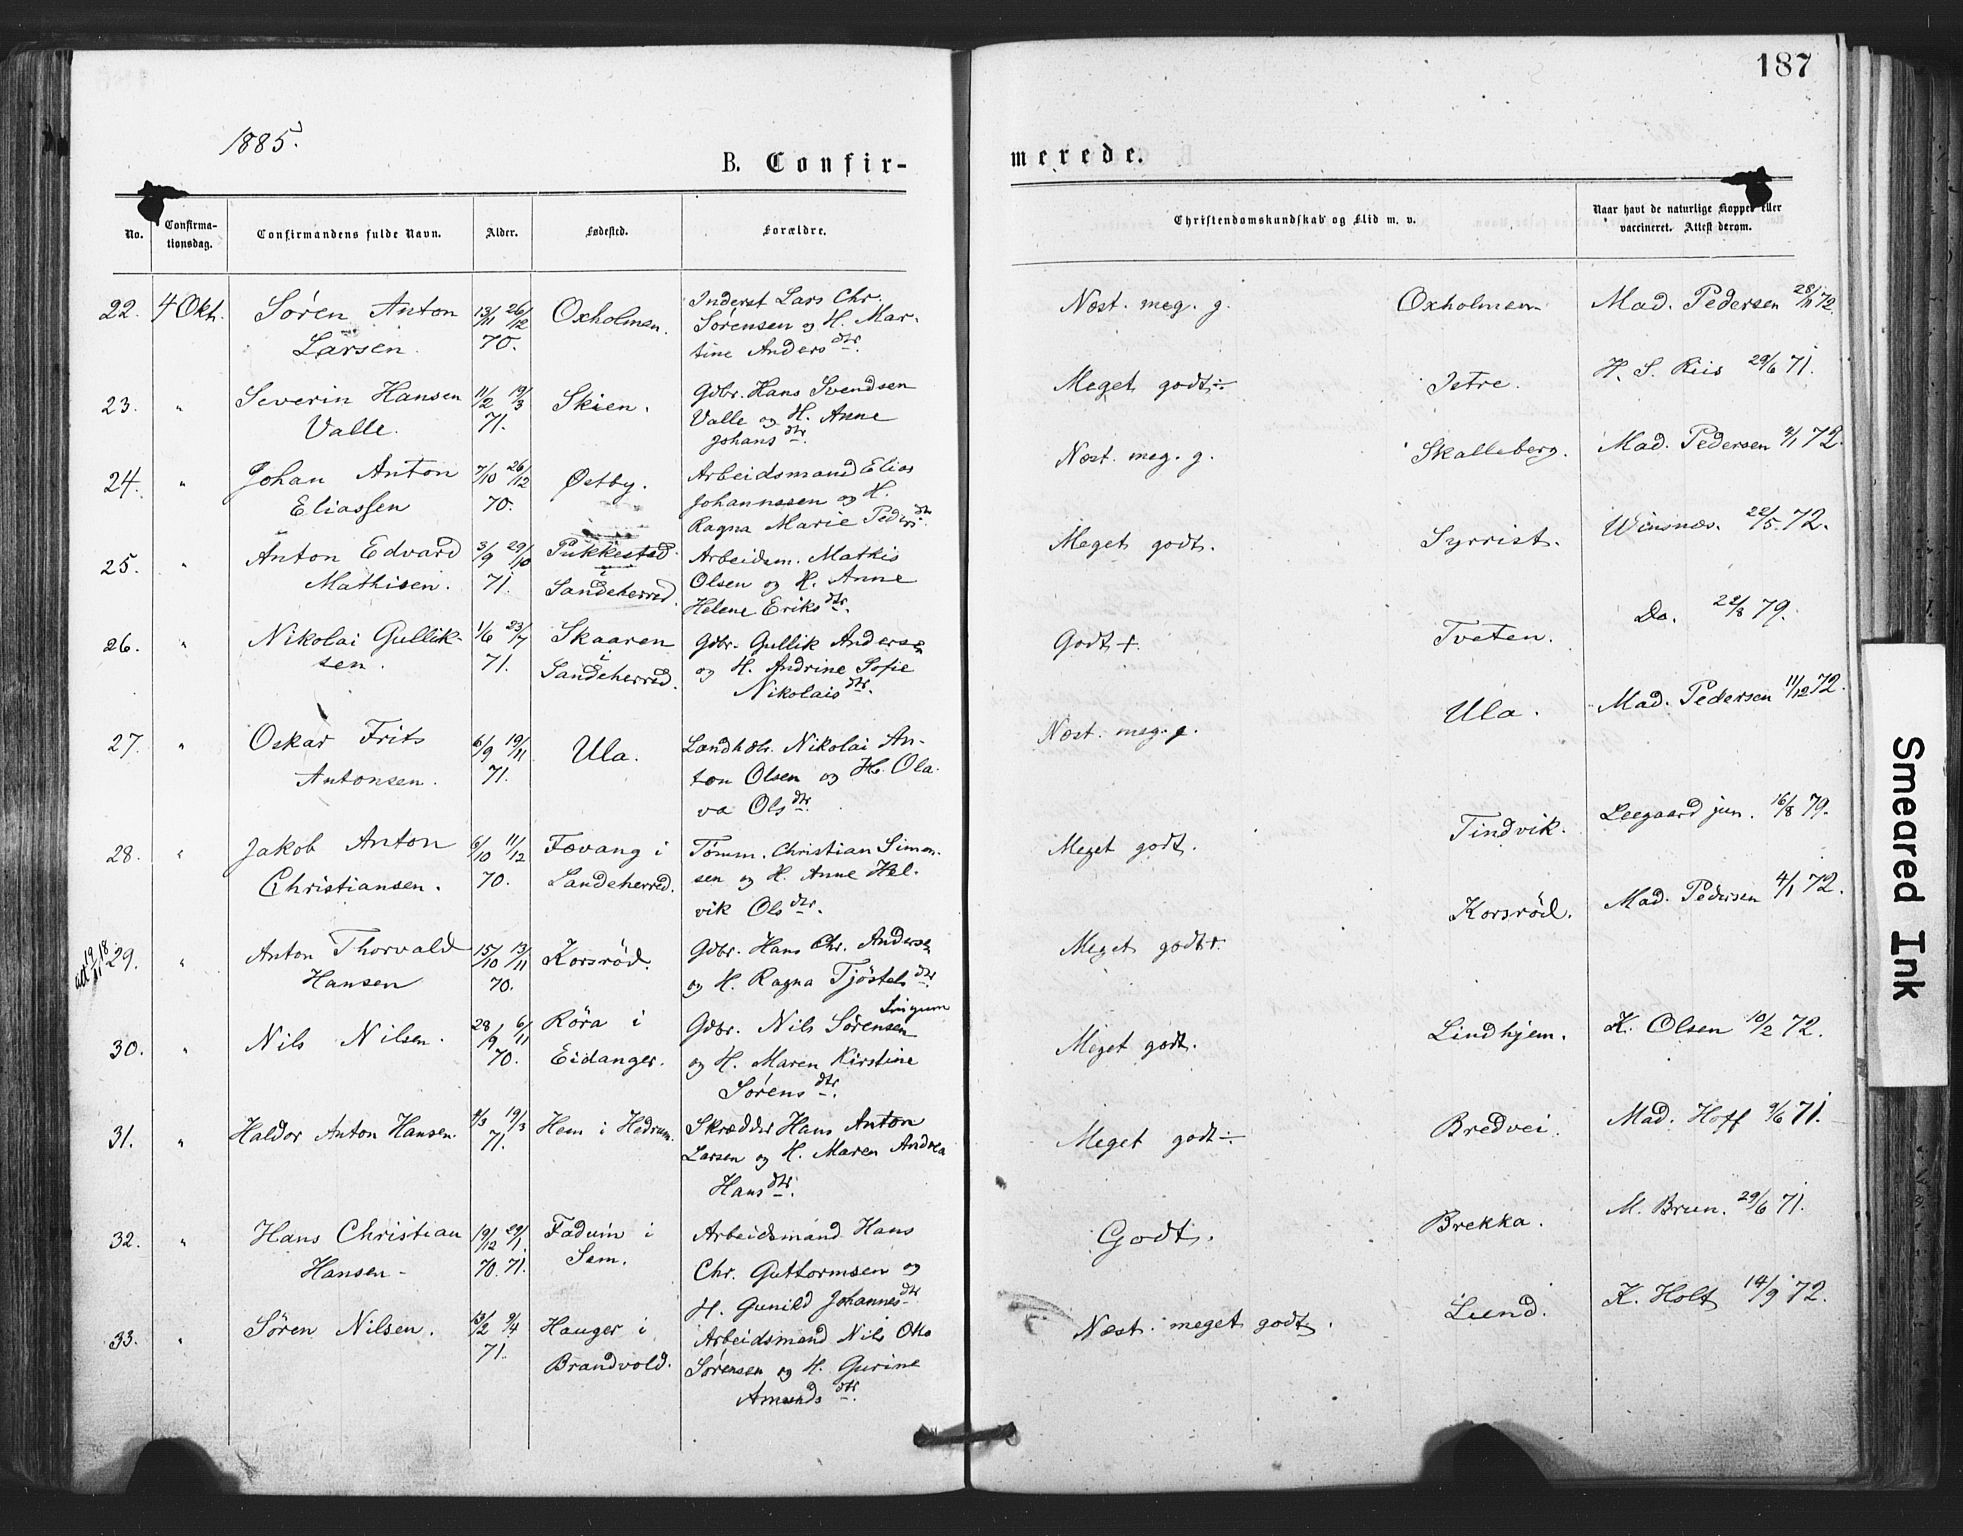 187
1885.
B. Confir-
merede.
No.
Confirma-
tionsdag.
Confirmandens fulde Navn.
Alder.
Fødested.
Forældre.
Christendomskundskab og Flid m. v.
Naar havt de naturlige Kopper eller
vaccineret. Attest derom.
22. 4 Okt. Søren Anton Larsen. 13/11 26/12 70. Oxholmen. Inderst Lars Chr.
Sørensen og H. Mar-
tine Andersdtr.
Næst. meg. g. Oxholmen Mad. Pedersen 28/11 72.
23. " Severin Hansen Valle. 11/2 19/3 71. Skien. Gdbr. Hans Svendsen
Valle og H. Anne
Johansdtr.
Meget godt ÷ Istre. H. S. Riis 29/6 71.
24. " Johan Anton Eliassen 7/10 26/12 70. Østby. Arbeidsmand Elias
Johannssen og H.
Ragna Marie Pedersdtr.
Næst. meg. g. Skalleberg. Mad. Pedersen 9/1 72.
25. " Anton Edvard Mathisen. 3/9 29/10 71. Pukkestad i Sandeherred. Arbeidsm. Mathis
Olsen og H. Anne
Helene Eriksdtr.
Meget godt. Syrrist. Winsnæs. 22/5 72.
26. " Nikolai Gullik-
sen. 1/6 23/7 71. Skaaren i Sandeherred. Gdbr. Gullik Andersen
og H. Andrine Sofie
Nikolaisdtr.
Godt + Tveten. Do. 22/8 79.
27. " Oskar Frits Antonsen. 6/9 19/11 71. Ula. Landhdlr. Nikolai An-
ton Olsen og H. Ola-
va Olsdtr.
Næst. meg. g. Ula. Mad. Pedersen 11/12 72.
28. " Jakob Anton Christiansen. 6/10 11/12 70. Fævang i Sandeherred. Tømm. Christian Simon-
sen og H. Anne Hel-
vik Olsdtr.
Meget godt. Tindvik. Leegaard jun. 16/8 79.
att 19/11 18
29. " Anton Thorvald Hansen 15/10 13/11 70. Korsrød. Gdbr. Hans Chr. Andersen
og H. Ragna Tjøstelsdtr.
Meget godt + Korsrød. Mad. Pedersen 4/1 72.
30. " Nils Nilsen. 28/9 6/11 70. Röra i Eidanger. Gdbr. Nils Sørensen
og H. Maren Kirstine
Sørensdtr.
Meget godt. Lindhjem. K. Olsen 10/2 72.
31. " Haldor Anton Hansen. 4/3 19/3 71. Hem i Hedrum. Skrædder Hans Anton
Larsen og H. Maren Andrea
Hansdtr.
Meget godt ÷ Bredvei. Mad. Hoff 9/6 71.
32. " Hans Christian Hansen - 19/12 70. 29/1 71. Fadum i Sem. Arbeidsmand Hans
Chr. Guttormsen og
H. Gunild Johannesdtr
Godt. Brekka. M. Brun. 29/6 71.
33. " Søren Nilsen. 13/2 9/4 71. Hauger i Brandvold. Arbeidsmand Nils Otto
Sørensen og H. Gurine
Amundsdtr.
Næst. meget godt. Lund. K. Holt 14/9 72.
Smeared Ink